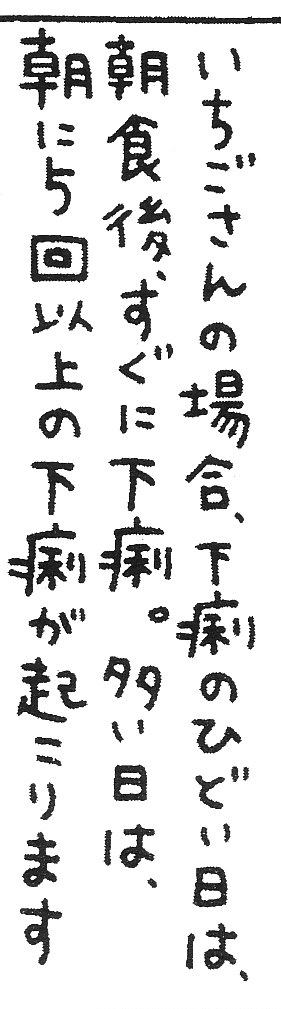 いちごさんの場合、下痢のひどい日は、
朝食後、すぐに下痢。多い日は、
朝に5回以上の下痢が起こります